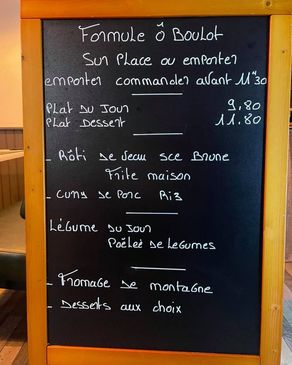 Formule ô Boulot
Sur Place ou emporter
emporter commander avant 11h30
Plat du Jour 9,80
Plat Dessert 11.80
- Rôti de Veau sce Brune
Frite maison
- Curry de Porc Riz
Légume du Jour
Poêlée de Legumes
- Fromage de montagne
- Desserts aux choix